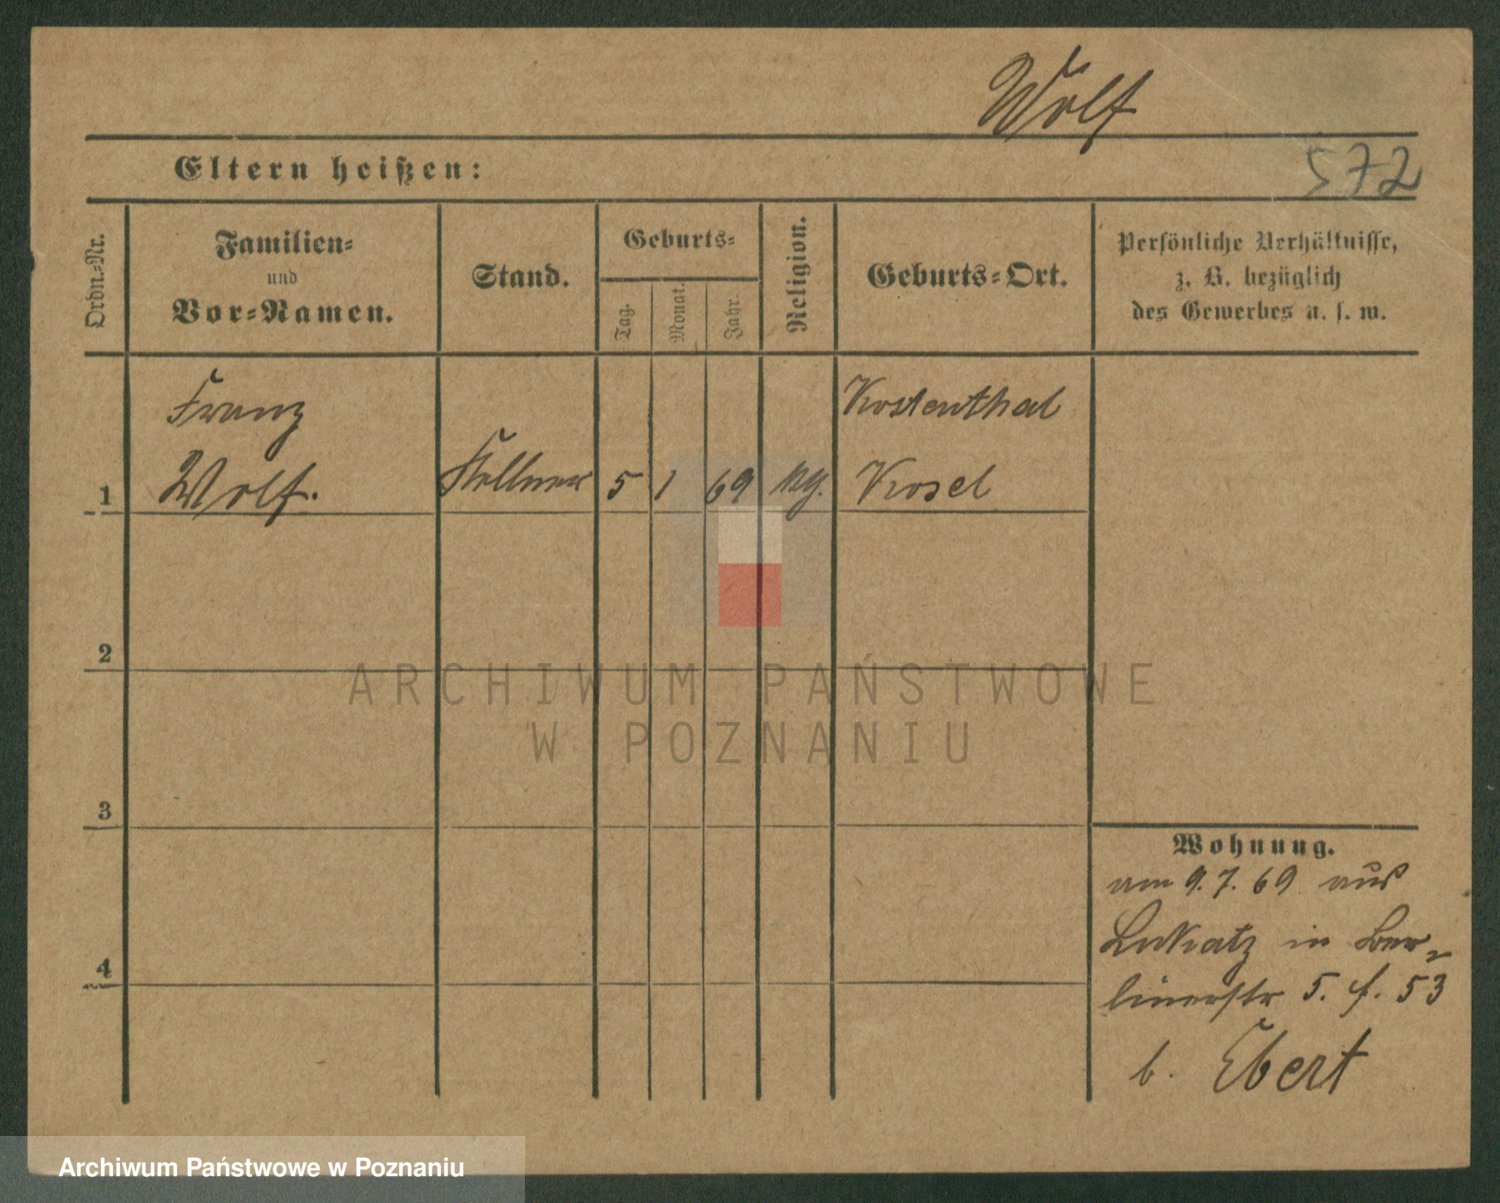 Wolf
Eltern heißen:
572
Ordn.-Nr.
Familien-
und
Vor-Namen.
Stand.
Geburts-
Tag.
Monat.
Jahr.
Religion.
Geburts-Ort.
Persönliche Verhältnisse,
z. B. bezüglich
des Gewerbes u. s. w.
Franz
Kostenthal
1 Wolf. Kellner 5 1 69 Kosel
2
3
4
ARCHIWUM PAŃSTWOWE
W POZNANIU
Wohnung.
am 9.7.69 aus
Lukatz in Ber-
linerstr 5. f. 53
b. Ebert
Archiwum Państwowe w Poznaniu